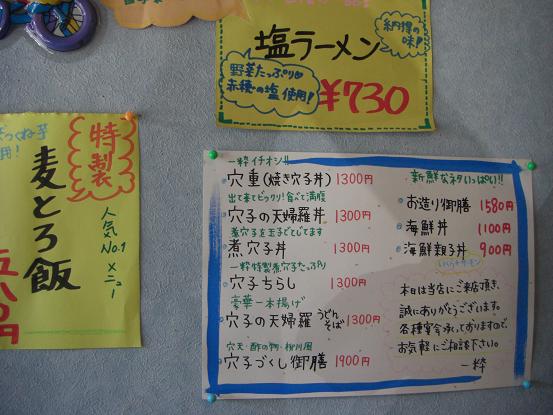 塩ラーメン
納得の
味!
野菜たっぷり
赤穂の塩使用!
¥730
特製
麦とろ飯
人気No.1メニュー
一粋イチオシ!!
穴重(焼き穴子丼) 1300円
出て来てビックリ!食べて満腹
穴子の天婦羅丼 1300円
煮穴子を玉子でとじてます
煮穴子丼 1300円
一粋特製煮穴子たっぷり
穴子ちらし 1300円
豪華一本揚げ
穴子の天婦羅 うどん そば 1300円
穴天・酢の物・柳川風
穴子づくし御膳 1900円
新鮮なネタいっぱい!!
お造り御膳 1580円
海鮮丼 1100円
海鮮親子丼 900円
いくらサーモン
本日は当店にご来店頂き、
誠にありがとうございます。
各種宴会承っておりますので、
お気軽にご相談下さい。
一粋